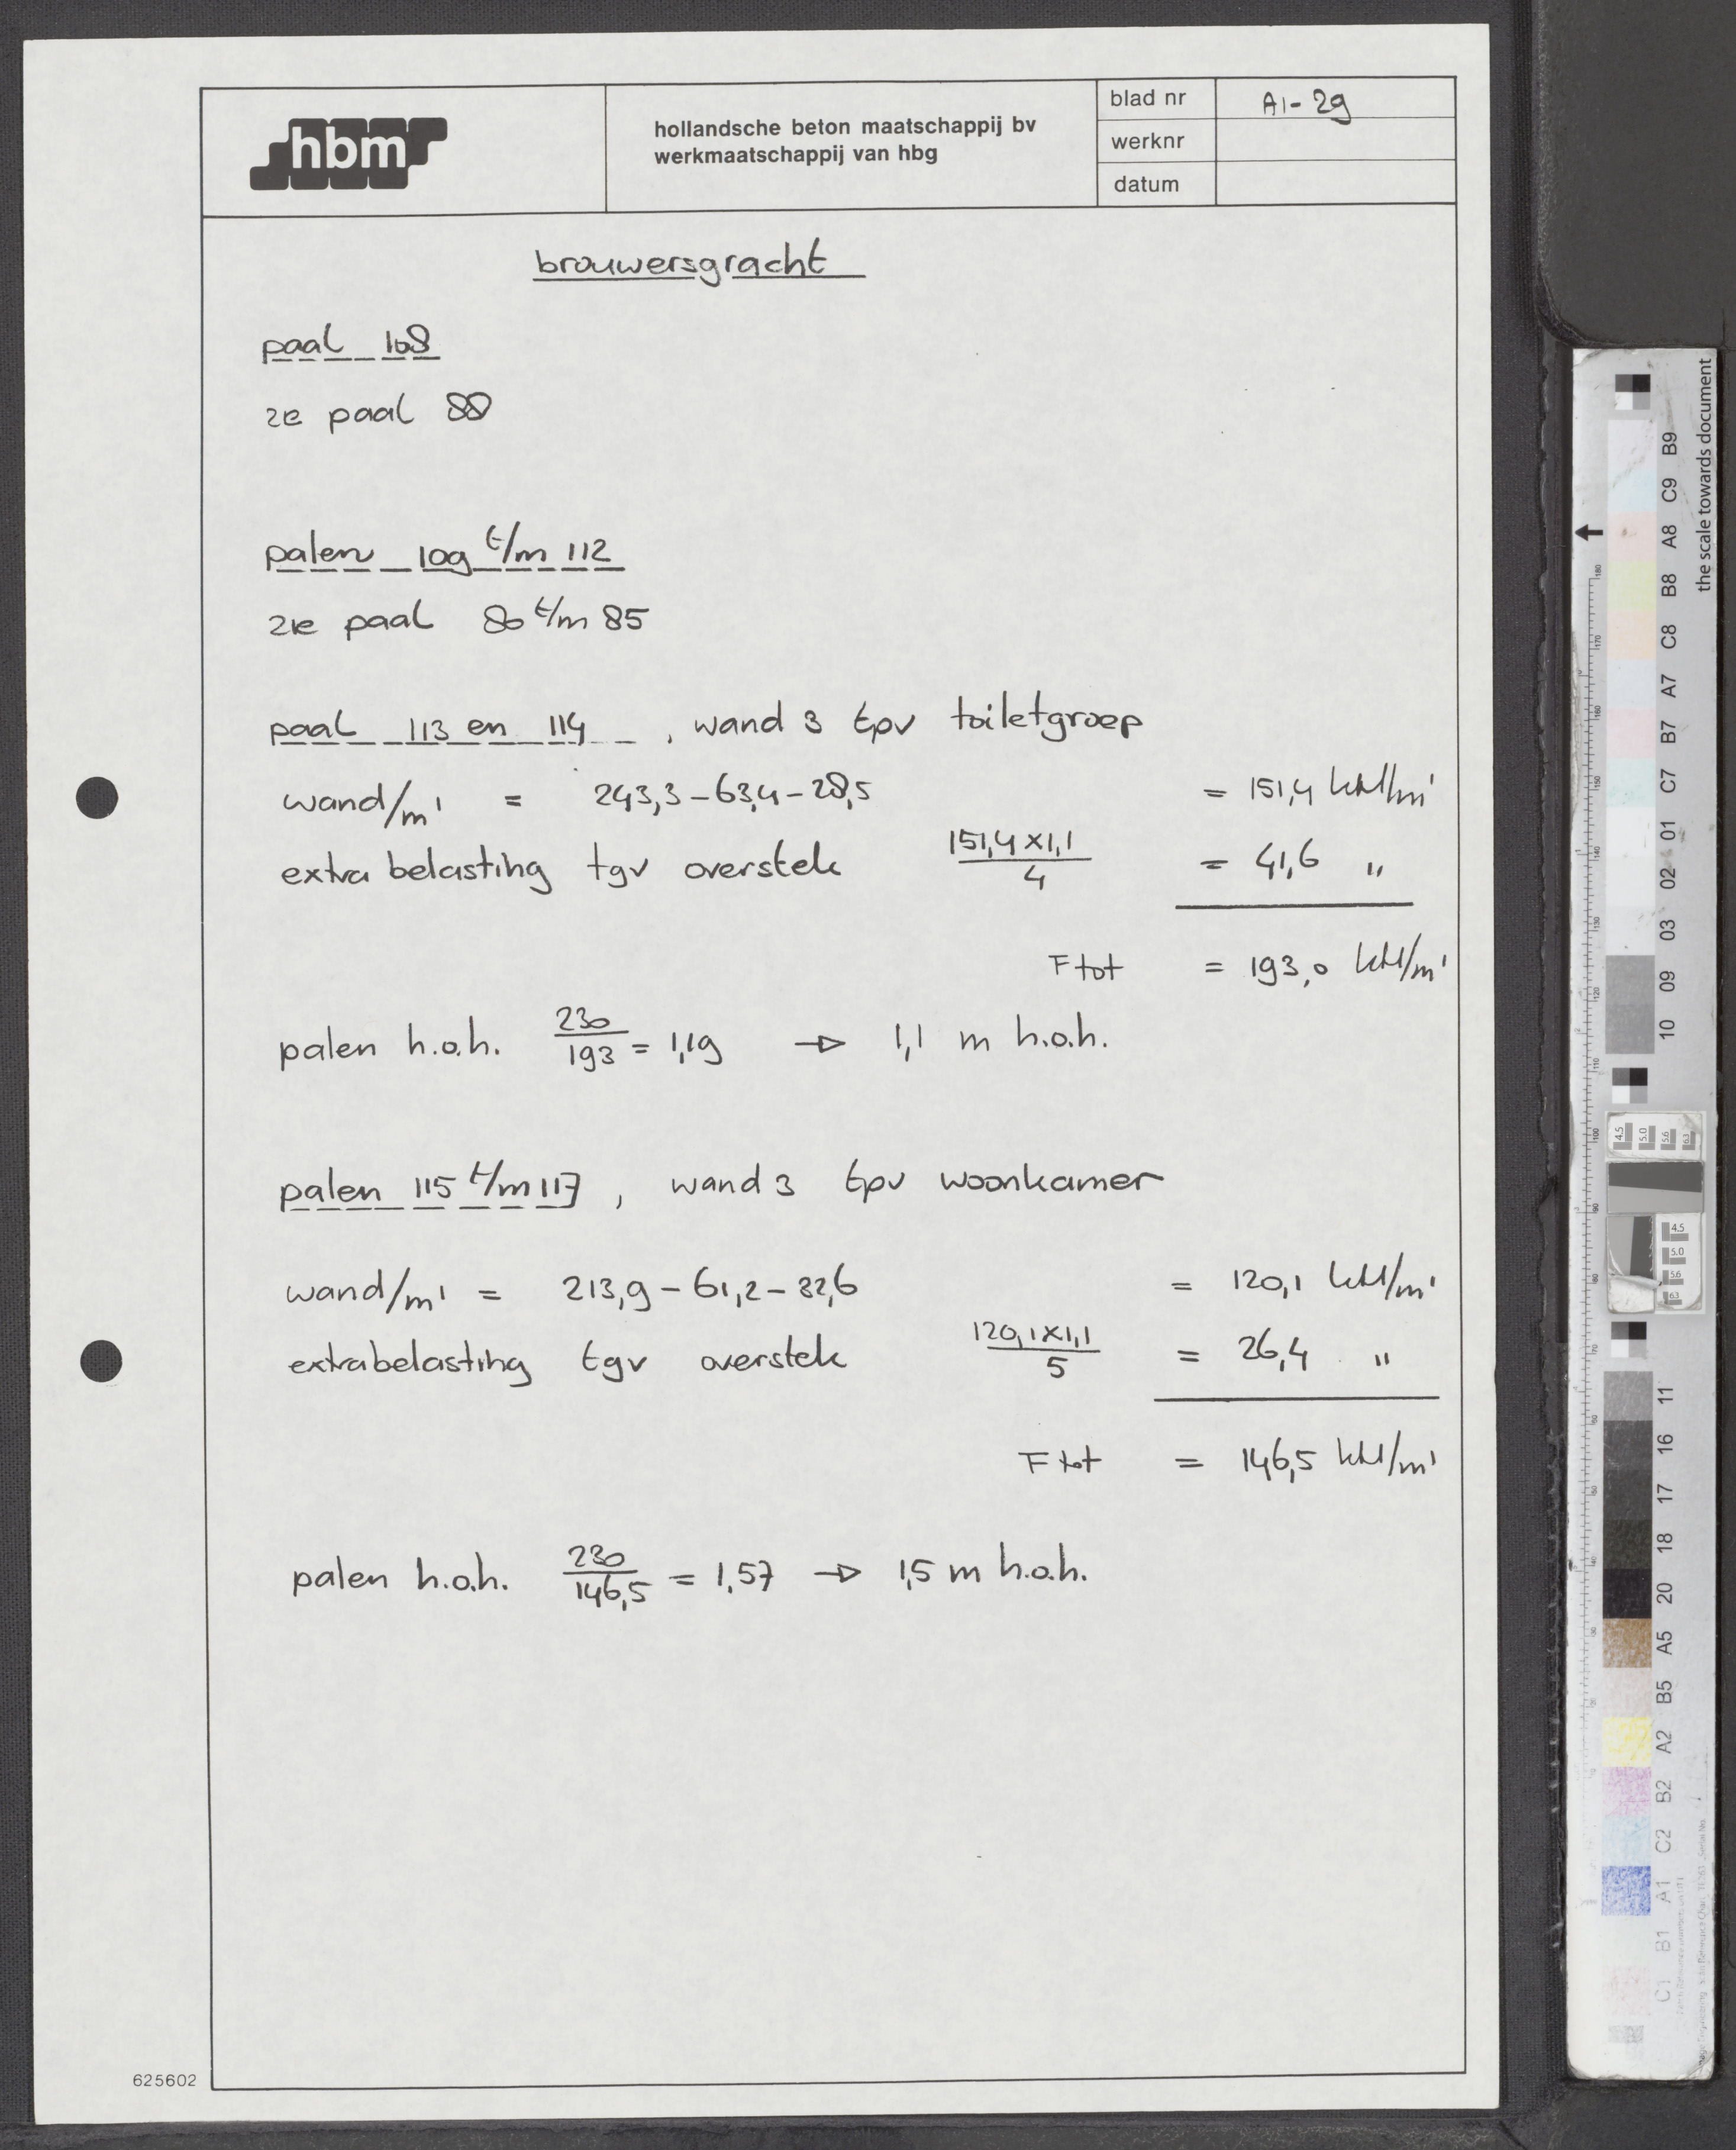 hbm
hollandsche beton maatschappij bv
werkmaatschappij van hbg
blad nr A1-29
werknr
datum
brouwersgracht
paal 108
zie paal 88
palen 109 t/m 112
zie paal 80 t/m 85
paal 113 en 114 , wand 3 tpv toiletgroep
wand/m' = 243,3 - 63,4 - 28,5 = 151,4 kN/m'
extra belasting tgv overstek 151,4 x 1,1 / 4 = 41,6 "
F tot = 193,0 kN/m'
palen h.o.h. 230 / 193 = 1,19 → 1,1 m h.o.h.
palen 115 t/m 117 , wand 3 tpv woonkamer
wand/m' = 213,9 - 61,2 - 32,6 = 120,1 kN/m'
extra belasting tgv overstek 120,1 x 1,1 / 5 = 26,4 "
F tot = 146,5 kN/m'
palen h.o.h. 230 / 146,5 = 1,57 → 1,5 m h.o.h.
625602
the scale towards document
B9
C9
A8
B8
C8
A7
B7
C7
01
02
03
09
10
11
16
17
18
20
A5
B5
A2
B2
C2
A1
B1
C1